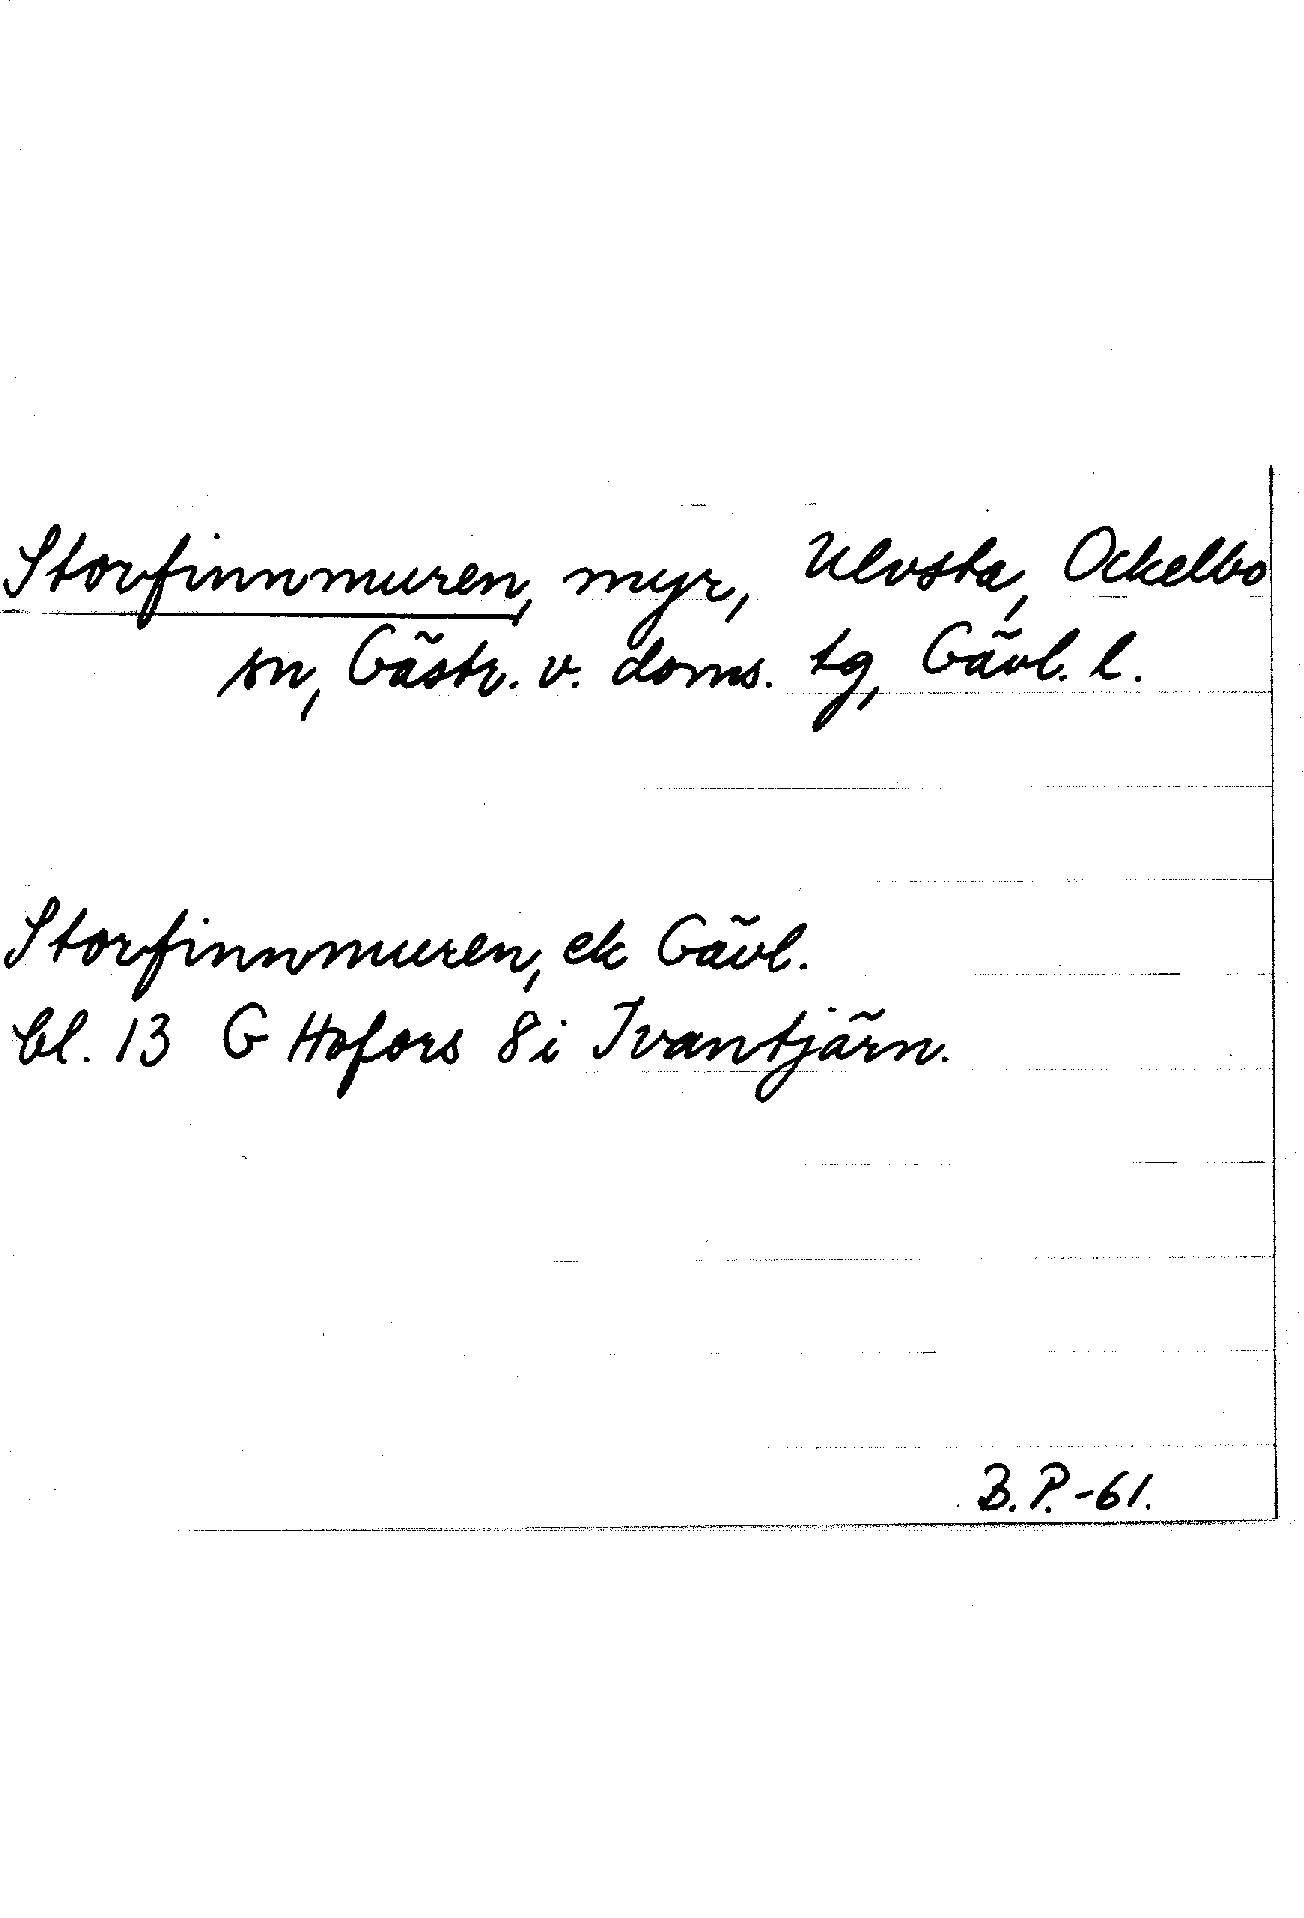 Storfinnmuren, myr, Ulvsta, Ockelbo
sn, Gästr. v. doms. tg, Gävl. l.
Storfinnmuren, ek Gävl.
bl. 13 G Hofors 8i Ivantjärn.
B.P.-61.